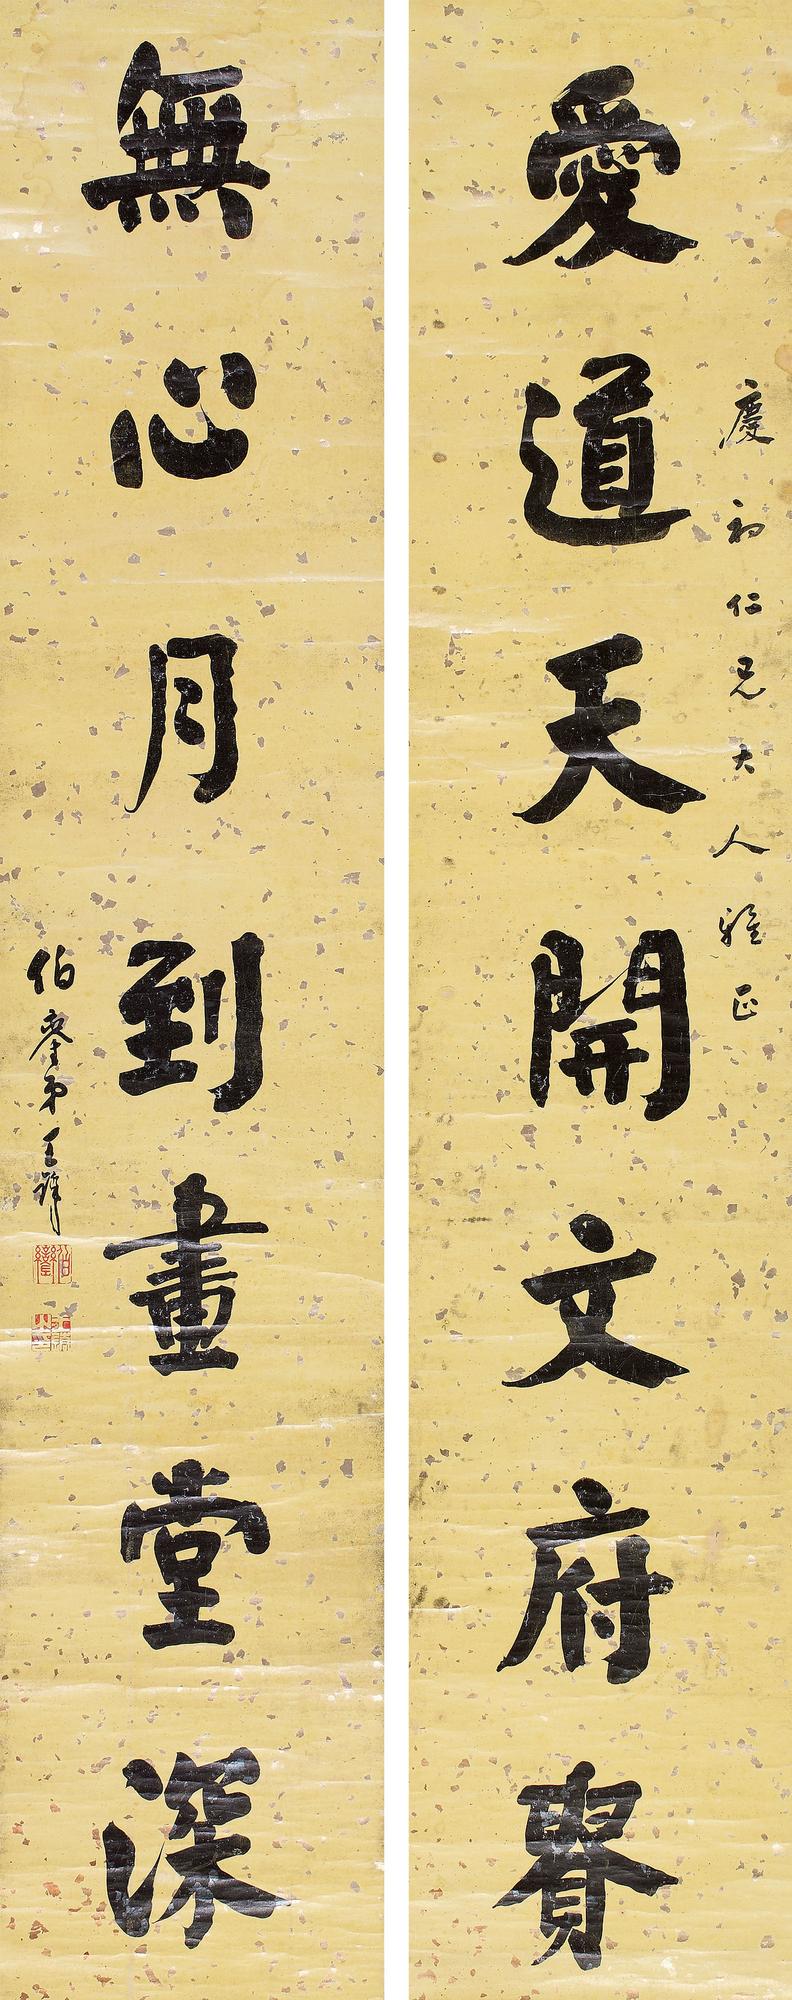 慶初仁兄大人雅正
愛道天開文府
無心月到畫堂深
伯弟王